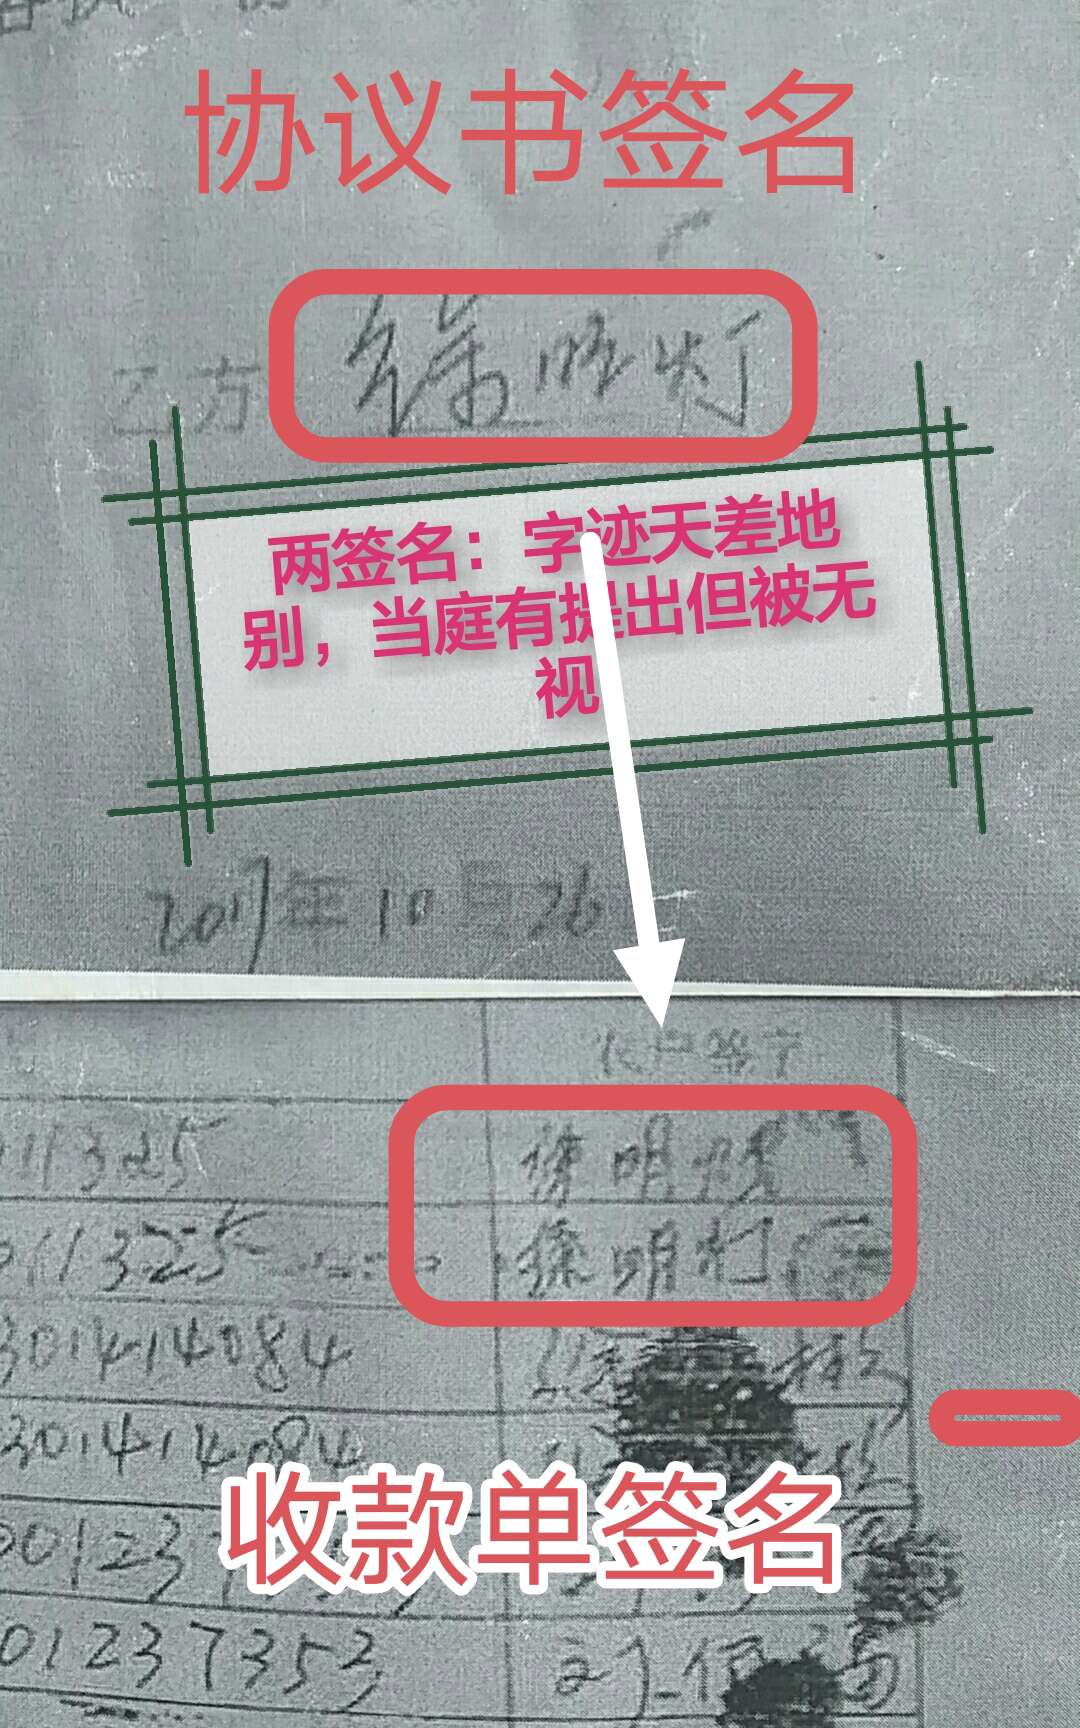 协议书签名
乙方 徐明灯
两签名：字迹天差地
别，当庭有提出但被无
视
2017年10月26
农户签字
11325 徐明灯
11325 徐明灯
301414084
301414084
00123
收款单签名
01237353